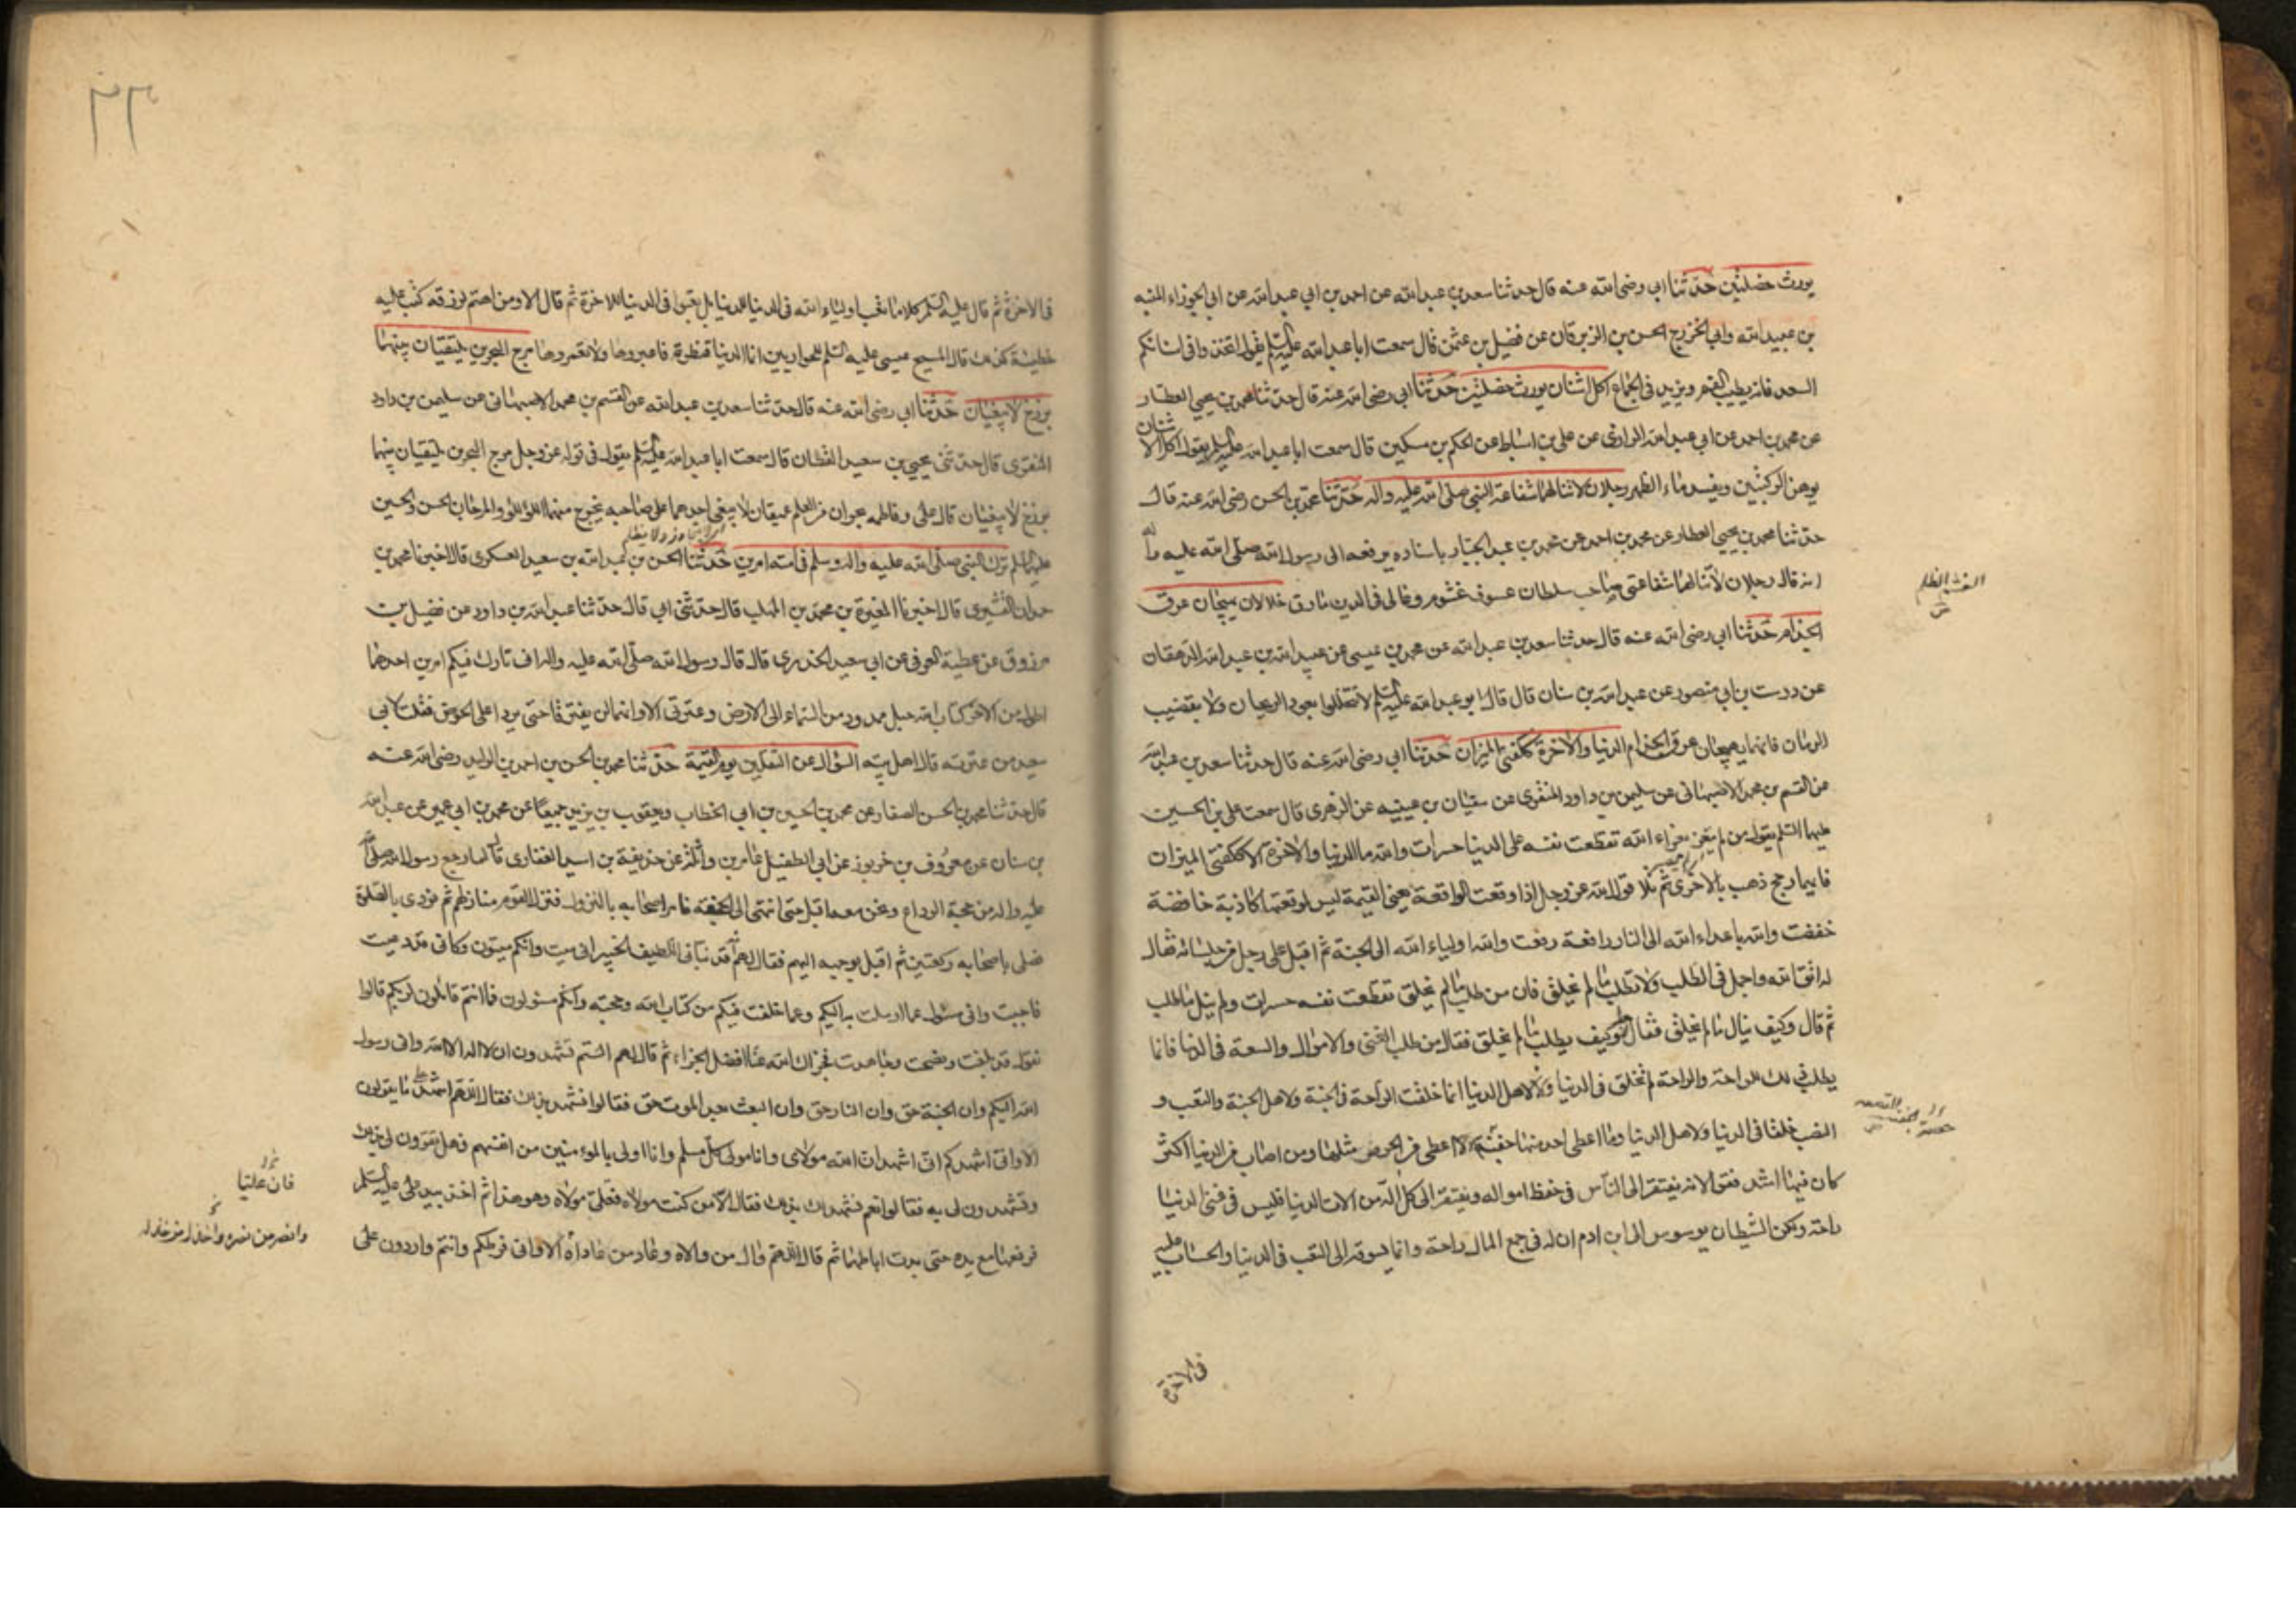 يورث خصلتين حدثنا ابي رضى الله عنه قال حدثنا سعد بن عبد الله عن احمد بن ابي عبد الله عن ابي الجوزاء المنبه
بن عبيد الله وابي الخزرج الحسن بن الزبرقان عن فضيل بن عثمن قال سمعت ابا عبد الله عليه السلم يقول اتخذوا في اسنانكم
السعد فانه يطيب الفم ويزيد في الجماع اكل اشنان يورث خصلتين حدثنا ابي رضى الله عنه قال حدثنا محمد بن يحيى العطار
عن محمد بن احمد عن ابي عبد الله الرازي عن علي بن اسباط عن الحكم بن مسكين قال سمعت ابا عبد الله عليه السلم يقول اكل الاشنان
يوهن الركبتين ويفسد ماء الظهر رجلان لا تنالهما شفاعة النبي صلى الله عليه واله حدثنا محمد بن الحسن رضى الله عنه قال
حدثنا محمد بن يحيى العطار عن محمد بن احمد عن محمد بن عبد الجبار باسناده يرفعه الى رسول الله صلى الله عليه واله
انه قال رجلان لا تنالهما شفاعتي صاحب سلطان عسوف غشوم وغالى فى الدين مارق خلالان يهيجان عرق
الجذام حدثنا ابي رضى الله عنه قال حدثنا سعد بن عبد الله عن محمد بن عيسى عن عبيد الله بن عبد الله الدهقان
عن درست بن ابي منصور عن عبد الله بن سنان قال قال ابو عبد الله عليه السلم لا تخللوا بعود الريحان ولا بقضيب
الرمان فانهما يهيجان عرق الجذام الدنيا والاخرة ككفتي الميزان حدثنا ابي رضى الله عنه قال حدثنا سعد بن عبد الله
عن القسم بن محمد الاصبهاني عن سليمن بن داود المنقرى عن سفيان بن عيينه عن الزهرى قال سمعت على بن الحسين
عليهما السلم يقول من لم يتعز بعزاء الله تقطعت نفسه على الدنيا حسرات والله ما الدنيا والاخرة الا ككفتى الميزان
فايهما رجح ذهب بالاخرى ثم تلا قول الله عز وجل اذا وقعت الواقعة يعنى القيمة ليس لوقعتها كاذبة خافضة
خفضت والله باعداء الله الى النار رافعة رفعت والله اولياء الله الى الجنة ثم اقبل على رجل من جلسائه فقال
له اتق الله واجمل فى الطلب ولا تطلب ما لم يخلق فان من طلب ما لم يخلق تقطعت نفسه حسرات ولم ينل ما طلب
ثم قال وكيف ينال ما لم يخلق فقال الرجل وكيف يطلب ما لم يخلق فقال من طلب الغنى والاموال والسعة فى الدنيا فانما
يطلب ذلك للراحة والراحة لم تخلق فى الدنيا ولا لاهل الدنيا انما خلقت الراحة فى الجنة ولاهل الجنة والتعب و
النصب خلقا فى الدنيا ولاهل الدنيا وما اعطى احد منها حفنة الا اعطى من الحرص مثلها ومن اصاب من الدنيا اكثر
كان فيها اشد فقرا لانه يفتقر الى الناس فى حفظ امواله ويفتقر الى كل الة من الات الدنيا فليس فى غنى الدنيا
راحة ولكن الشيطان يوسوس الى ابن ادم ان له فى جمع المال راحة وانما يسوقه الى التعب فى الدنيا والحساب عليه
فى الاخرة
الغشم الظلم
فى الاخرة ثم قال عليه السلم كلا ما تعب اولياء الله فى الدنيا للدنيا بل تعبوا فى الدنيا للاخرة ثم قال الا ومن اهتم لرزقه كتب عليه
خطيئة كذلك قال المسيح عيسى عليه السلم للحواريين انما الدنيا قنطرة فاعبروها ولا تعمروها مرج البحرين يلتقيان بينهما
برزخ لا يبغيان حدثنا ابي رضى الله عنه قال حدثنا سعد بن عبد الله عن القسم بن محمد الاصبهانى عن سليمن بن داود
المنقرى قال حدثنى يحيى بن سعيد القطان قال سمعت ابا عبد الله عليه السلم يقول فى قوله عز وجل مرج البحرين يلتقيان بينهما
برزخ لا يبغيان قال على وفاطمه بحران من العلم عميقان لا يبغى احدهما على صاحبه يخرج منهما اللؤلؤ والمرجان الحسن والحسين
عليهما السلم ترك النبى صلى الله عليه واله وسلم فى امته امرين حدثنا الحسن بن عبد الله بن سعيد العسكرى قال اخبرنا محمد بن
حمدان القشيرى قال اخبرنا المغيرة بن محمد بن المهلب قال حدثنى ابي قال حدثنا عبد الله بن داود عن فضيل بن
مرزوق عن عطية العوفى عن ابى سعيد الخدرى قال قال رسول الله صلى الله عليه واله انى تارك فيكم امرين احدهما
اطول من الاخر كتاب الله حبل ممدود من السماء الى الارض وعترتى الا وانهما لن يفترقا حتى يردا على الحوض فقلت لابى
سعيد من عترته قال اهل بيته السؤال عن الثقلين يوم القيمة حدثنا محمد بن الحسن بن احمد بن الوليد رضى الله عنه
قال حدثنا محمد بن الحسن الصفار عن محمد بن الحسين بن ابى الخطاب ويعقوب بن يزيد جميعا عن محمد بن ابى عمير عن عبد الله
بن سنان عن معروف بن خربوذ عن ابى الطفيل عامر بن واثلة عن حذيفة بن اسيد الغفارى قال لما رجع رسول الله صلى الله
عليه واله من حجة الوداع ونحن معه اقبل حتى انتهى الى الجحفة فامر اصحابه بالنزول فنزل القوم منازلهم ثم نودى بالصلوة
فصلى باصحابه ركعتين ثم اقبل بوجهه اليهم فقال لهم انه قد نبأنى اللطيف الخبير انى ميت وانكم ميتون وكانى قد دعيت
فاجبت وانى مسئول عما ارسلت به اليكم وعما خلفت فيكم من كتاب الله وحجته وانكم مسئولون فما انتم قائلون لربكم قالوا
نقول قد بلغت ونصحت وجاهدت فجزاك الله عنا افضل الجزاء ثم قال لهم الستم تشهدون ان لا اله الا الله وانى رسول
الله اليكم وان الجنة حق وان النار حق وان البعث بعد الموت حق فقالوا نشهد بذلك فقال اللهم اشهد على ما يقولون
الا وانى اشهدكم انى اشهد ان الله مولاى وانا مولى كل مسلم وانا اولى بالمؤمنين من انفسهم فهل تقرون لى بذلك
وتشهدون لى به فقالوا نعم نشهد لك بذلك فقال الا من كنت مولاه فعلى مولاه وهو هذا ثم اخذ بيد على عليه السلم
فرفعها مع يده حتى بدت اباطهما ثم قال اللهم وال من والاه وعاد من عاداه الا وانى فرطكم وانتم واردون على
فان عليا
وانصر من نصره واخذل من خذله